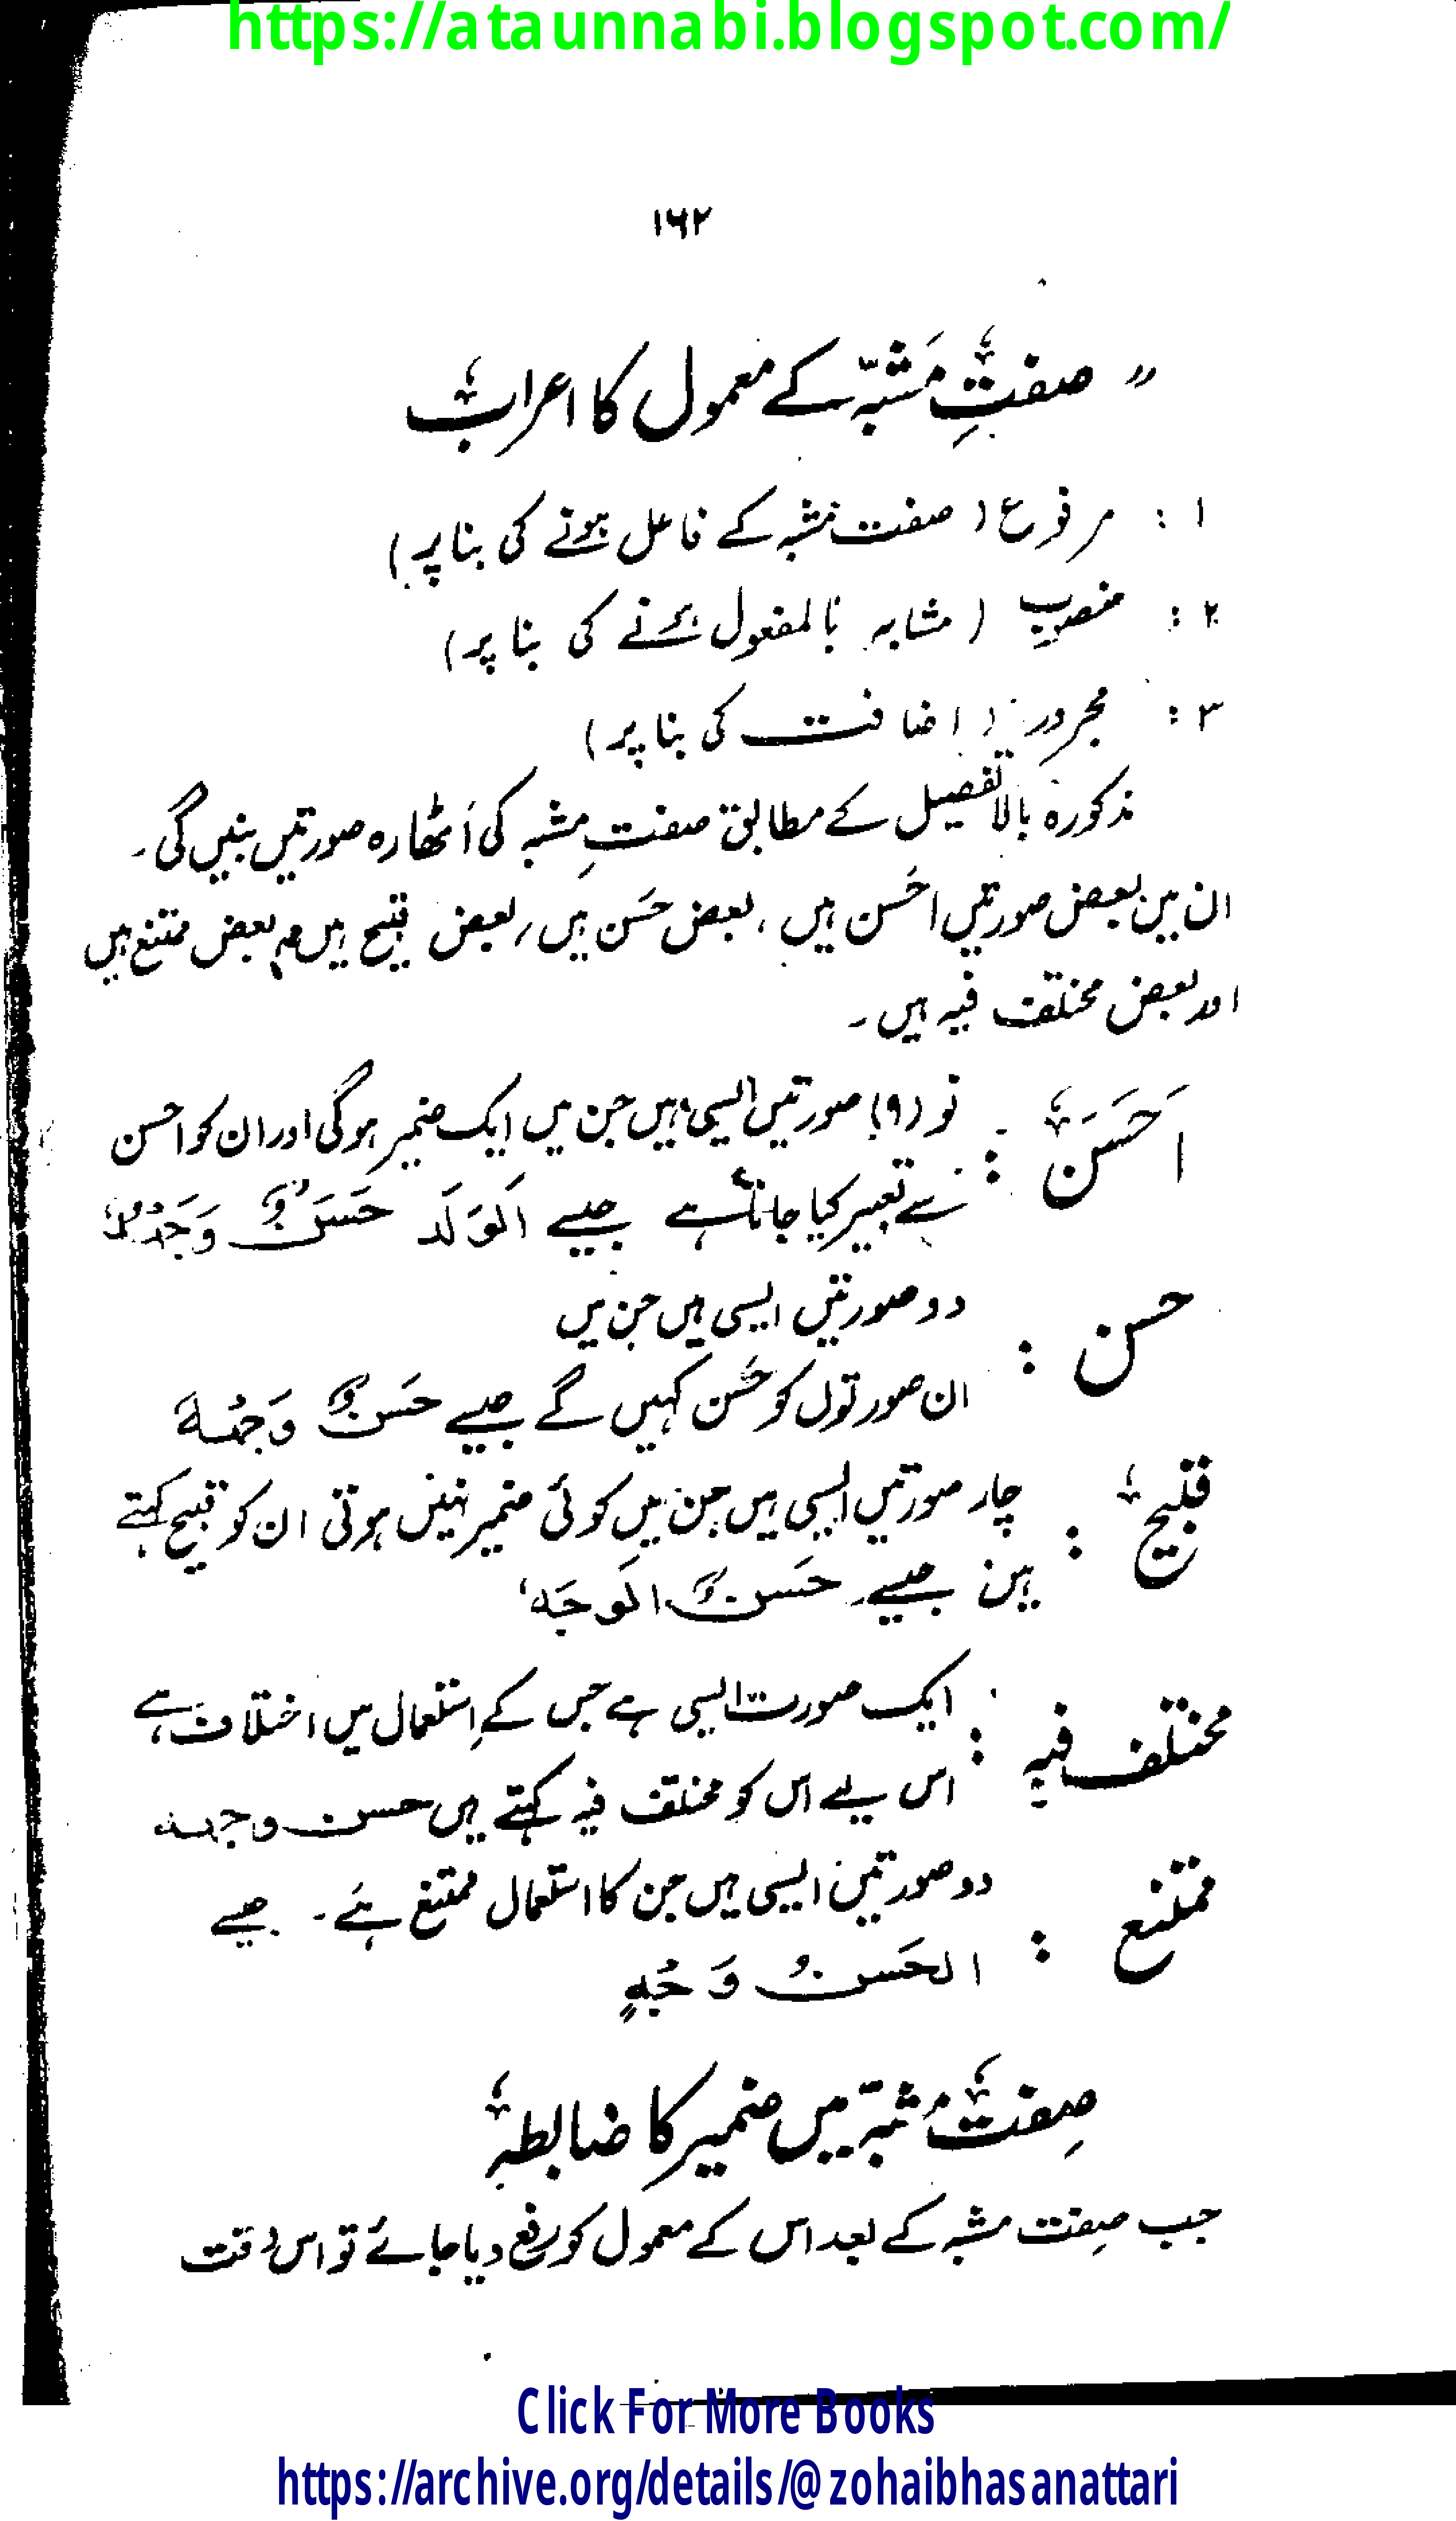 https://ataunnabi.blogspot.com/
۱۶۲
" صفتِ مشبّہ کے معمول کا اعراب
۱ : مرفوع ( صفت مشبہ کے فاعل ہونے کی بنا پر )
۲ : منصوب ( مشابہ بالمفعول ہونے کی بنا پر )
۳ : مجرور ( اضافت کی بنا پر )
مذکورہ بالا تفصیل کے مطابق صفتِ مشبہ کی اٹھارہ صورتیں بنیں گی ۔
ان میں بعض صورتیں احسن ہیں ، بعض حَسن ہیں ، بعض قبیح ہیں ، بعض ممتنع ہیں
اور بعض مختلف فیہ ہیں ۔
اَحَسَن : نو (۹) صورتیں ایسی ہیں جن میں ایک ضمیر ہوگی اور ان کو احسن
سے تعبیر کیا جاتا ہے جیسے اَلوَلَد حَسَنٌ وَجْهُهُ
حسن : دو صورتیں ایسی ہیں جن میں
ان صورتوں کو حَسن کہیں گے جیسے حَسَنٌ وَجْهُهُ
قبیح : چار صورتیں ایسی ہیں جن میں کوئی ضمیر نہیں ہوتی ان کو قبیح کہتے
ہیں جیسے حَسَنٌ الَوجَه
مختلف فیہ : ایک صورت ایسی ہے جس کے استعمال میں اختلاف ہے
اس لیے اس کو مختلف فیہ کہتے ہیں حسن وجهه
ممتنع : دو صورتیں ایسی ہیں جن کا استعمال ممتنع ہے ۔ جیسے
الحَسنُ وَجْهٍ
صِفتِ مشبّہ میں ضمیر کا ضابطہ
جب صفت مشبہ کے بعد اس کے معمول کو رفع دیا جائے تو اس وقت
Click For More Books
https://archive.org/details/@zohaibhasanattari